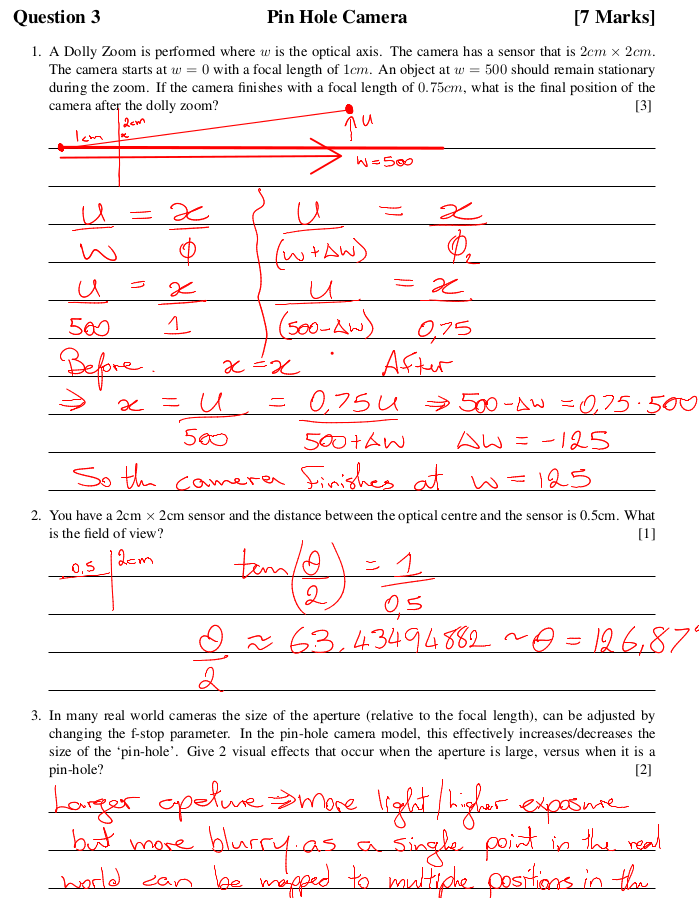 Question 3 Pin Hole Camera [7 Marks]
1. A Dolly Zoom is performed where w is the optical axis. The camera has a sensor that is 2cm × 2cm.
The camera starts at w = 0 with a focal length of 1cm. An object at w = 500 should remain stationary
during the zoom. If the camera finishes with a focal length of 0.75cm, what is the final position of the
camera after the dolly zoom? [3]
1cm 2cm x u
w=500
u/w = x/ϕ u/(w+Δw) = x/ϕ₂
u/500 = x/1 u/(500-Δw) = x/0,75
Before. x=x After
⇒ x = u/500 = 0,75u/500+Δw ⇒ 500-Δw = 0,75·500
Δw = -125
So the camera finishes at w = 125
2. You have a 2cm × 2cm sensor and the distance between the optical centre and the sensor is 0.5cm. What
is the field of view? [1]
0,5 2cm tan(θ/2) = 1/0,5
θ/2 ≈ 63,43494882 ~ θ = 126,87°
3. In many real world cameras the size of the aperture (relative to the focal length), can be adjusted by
changing the f-stop parameter. In the pin-hole camera model, this effectively increases/decreases the
size of the ‘pin-hole’. Give 2 visual effects that occur when the aperture is large, versus when it is a
pin-hole? [2]
Larger apeture ⇒ more light/higher exposure
but more blurry as a single point in the real
world can be mapped to multiple positions in the